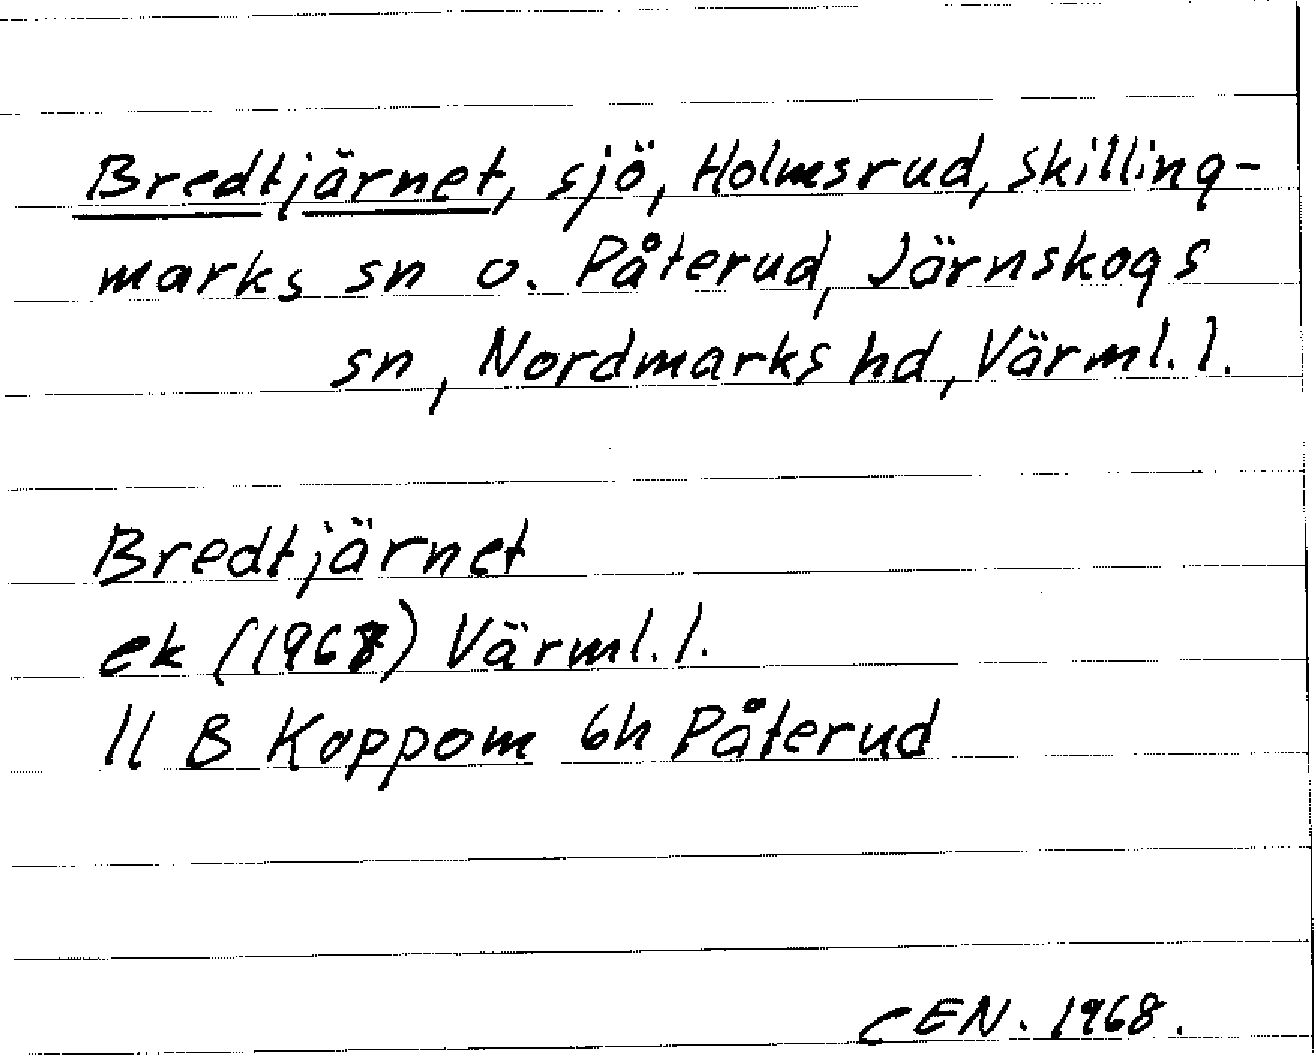 Bredtjärnet, sjö, Holmsrud, Skilling-
marks sn o. Påterud, Järnskogs
sn, Nordmarks hd, Värml. l.
Bredtjärnet
ek (1968) Värml. l.
11 B Koppom 6h Påterud
CEN. 1968.